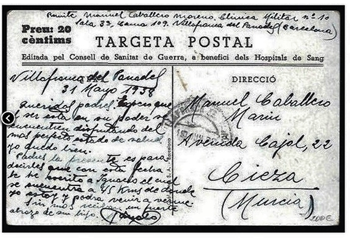 Remite Manuel Caballero Moreno, Clínica Militar nº 10
Sala 33, cama 109. Villafranca del Panadés (Barcelona)
Preu: 20
cèntims
TARGETA POSTAL
Editada pel Consell de Sanitat de Guerra, a benefici dels Hospitals de Sang
Villafranca del Panadés
31 Mayo 1938
Queridos padres: espero que
ser esta en su poder se
encuentren disfrutando del
más perfecto estado de salud,
yo quedo bien.
Padres la presente es para
decirles que con esta fecha
he escrito a Ignacio el cual
se encuentra a 45 Kms de donde
yo estoy y podrá venir a verme
Sin más, reciban un fuerte
abrazo de su hijo
DIRECCIÓ
Manuel Caballero
Marín
Avenida Cajal, 22
Cieza
(Murcia)